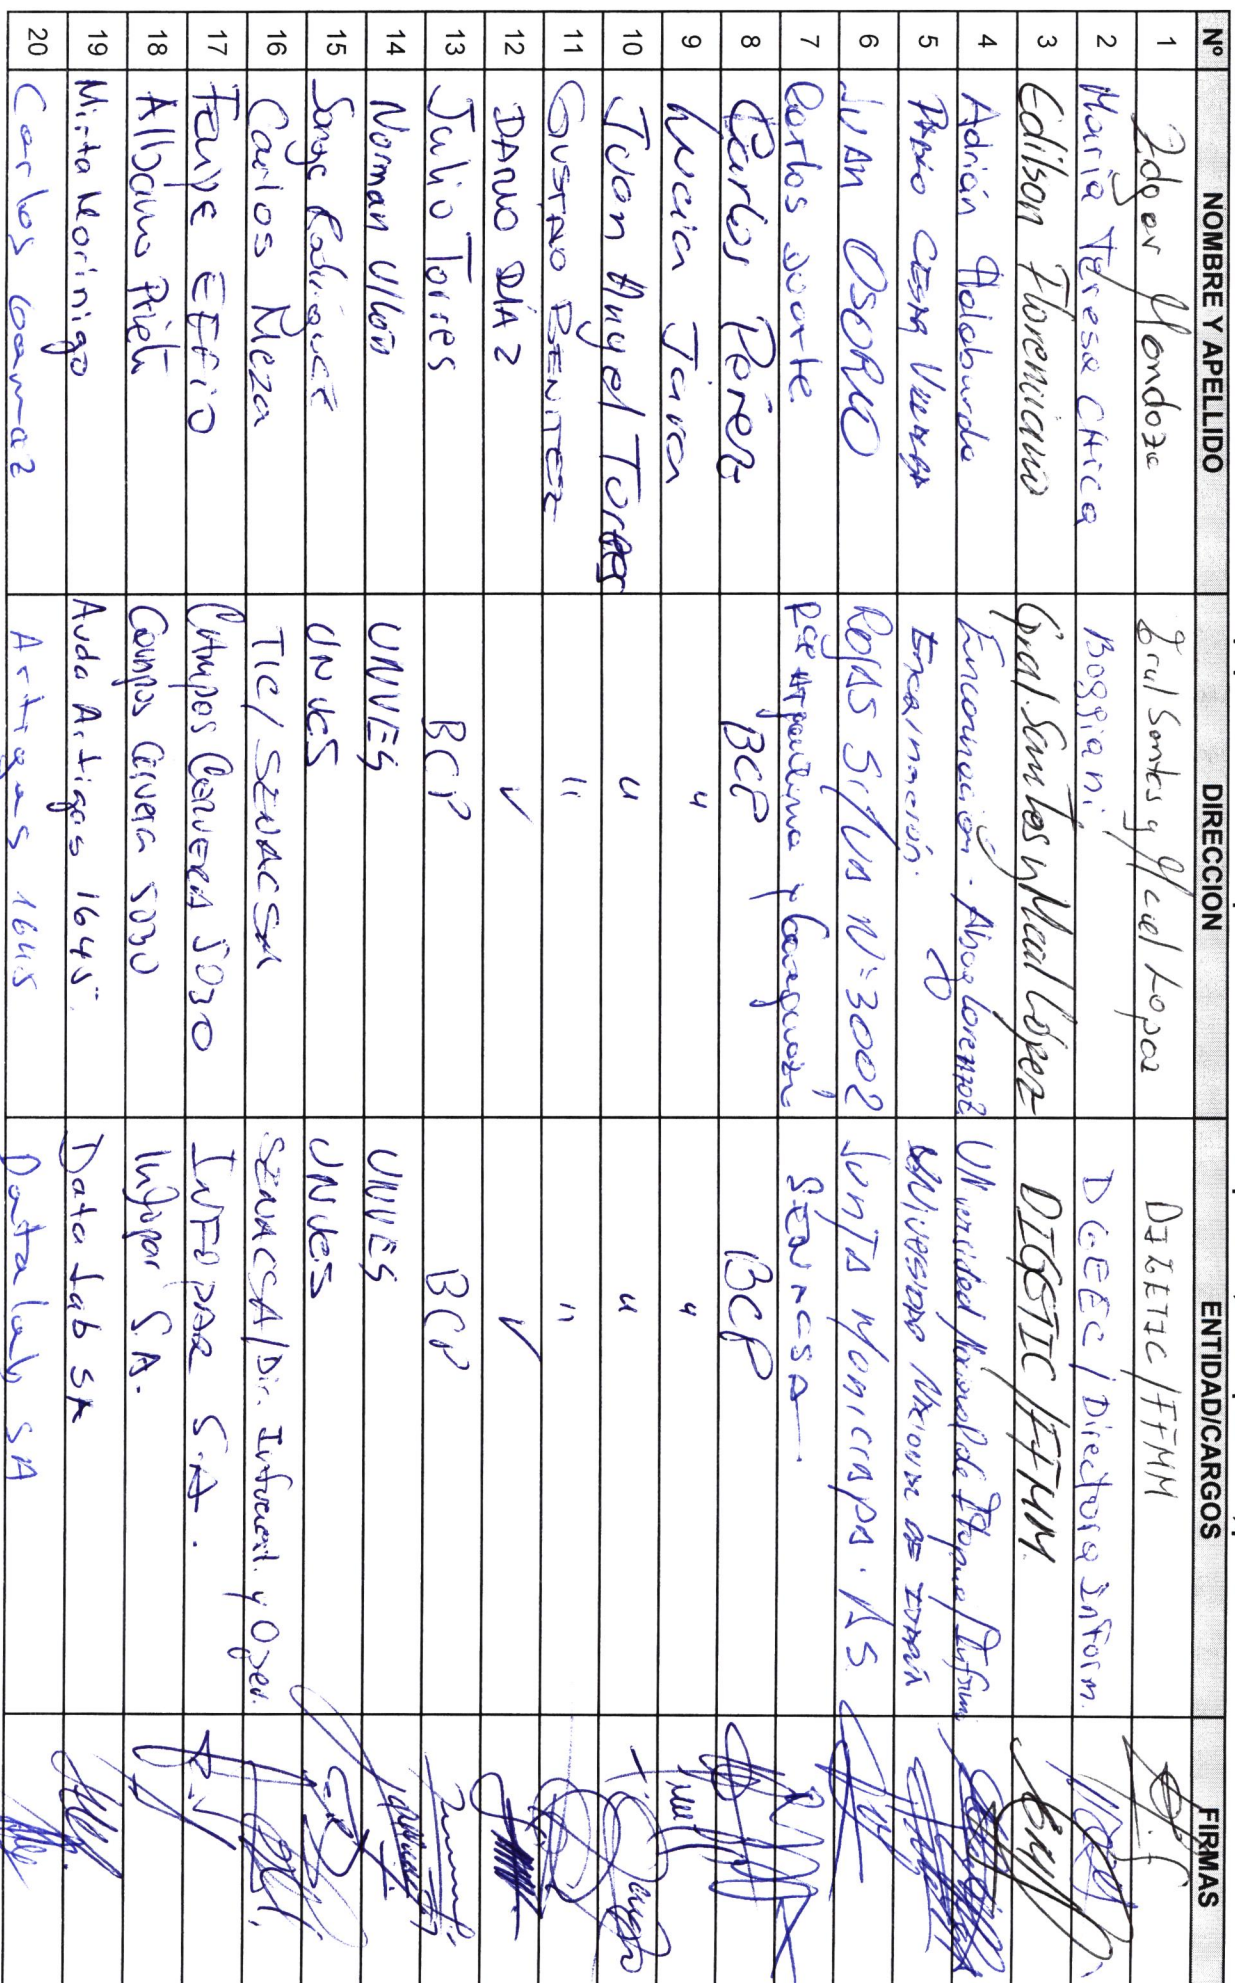 Nº NOMBRE Y APELLIDO DIRECCION ENTIDAD/CARGOS FIRMAS
1 Edgar Mendoza Gral Santos y Mcal Lopez /FFMM
2 María Teresa Chica Boggiani DGEEC / Directora Inform.
3 Edilson Florenciano Gral. Santos y Mcal López DIGETIC /FFMM.
4 Adrián Encarnación - Universidad Nacional de Itapua /
5 Encarnación. Universidad Nacional de
6 JUAN OSORIO Rojas Silva Nº 3002 Junta Municipal. AS.
7 Carlos Duarte SENACSA
8 Carlos Pérez BCP BCP
9 Lucia Jara " "
10 Juan Angel Torres " "
11 GUSTAVO BENITEZ " "
12 DARIO DÍAZ ✓ ✓
13 Julio Torres BCP BCP
14 Norman UNVES UNVES
15 UNVES UNVES
16 Carlos Meza TIC / SENACSA SENACSA / Dir. y Oper.
17 Felipe Campos Cervera 5030 INFOPAR S.A.
18 Campos Cervera 5030 Infopar S.A.
19 Mirta Morinigo Avda Artigas 1645 Data Lab SA
20 Carlos Artigas 1645 Datalab SA